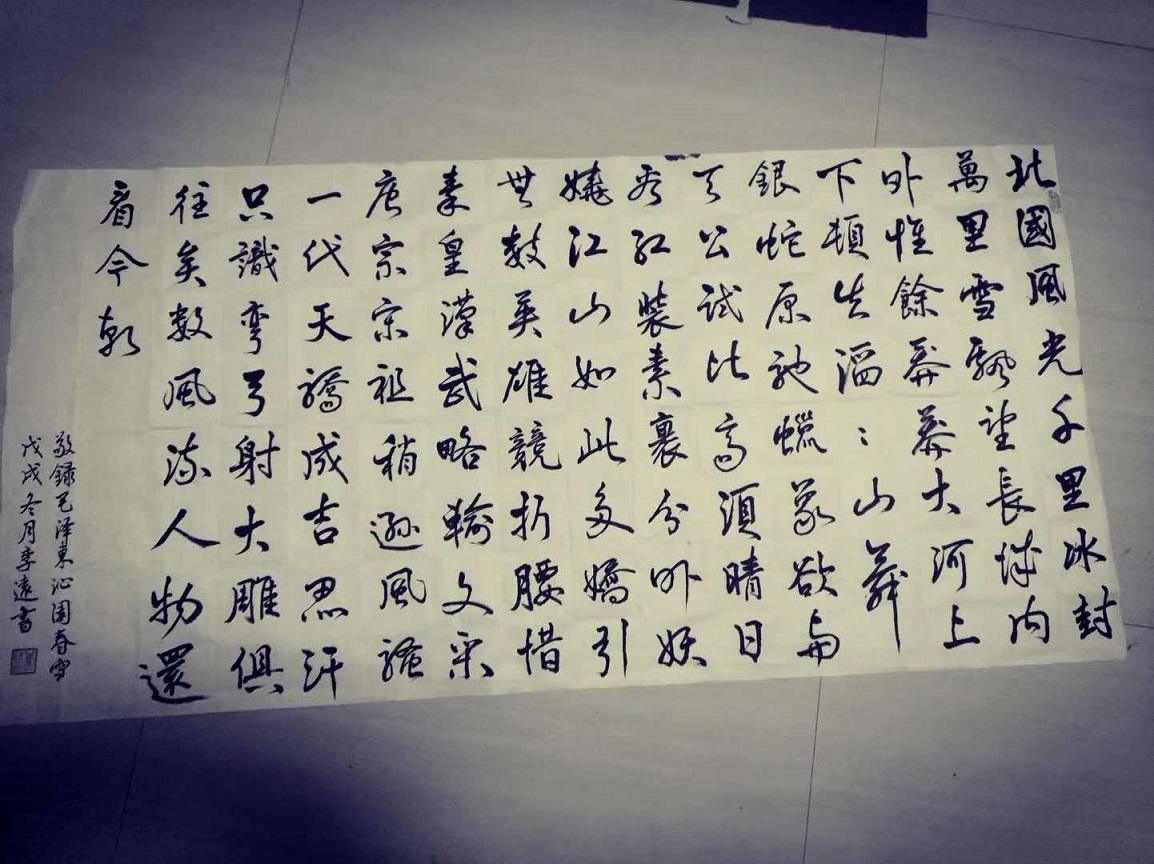 北國風光千里冰封
萬里雪飄望長城内
外惟餘莽莽大河上
下頓失滔〻山舞
銀蛇原馳蠟象欲与
天公試比高須晴日
看红裝素裹分外妖
嬈江山如此多嬌引
無數英雄競折腰惜
秦皇漢武略輸文采
唐宗宋祖稍遜風騷
一代天驕成吉思汗
只識彎弓射大雕俱
往矣數風流人物還
看今朝
敬録毛泽東沁園春雪
戊戌冬月李遠書